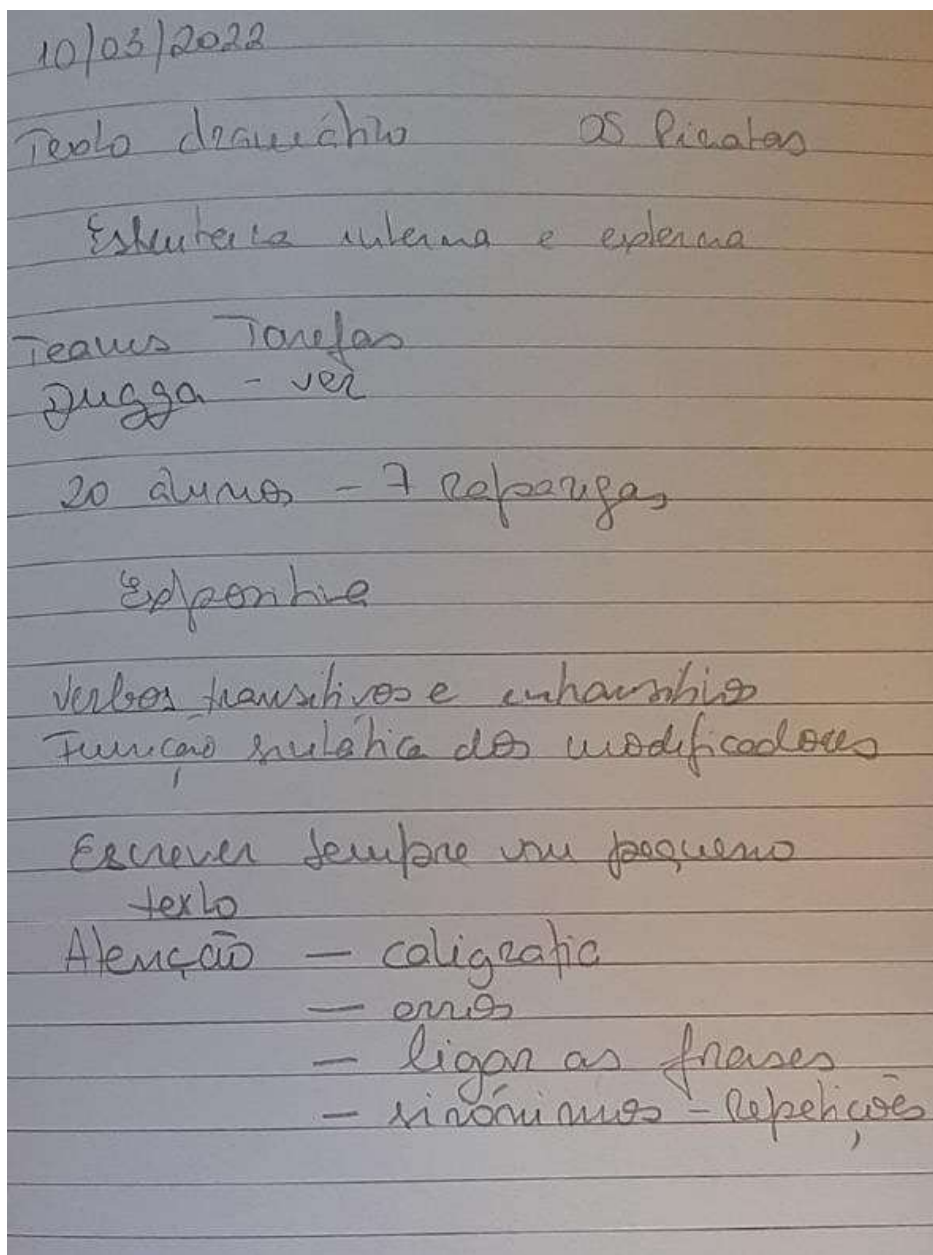 10/03/2022
Texto dramático Os Piratas
Estrutura interna e externa
Teams Tarefas
Dugga - ver
20 alunos - 7 Raparigas
Expositiva
Verbos transitivos e intransitivos
Função sintática dos modificadores
Escrever sempre um pequeno
texto
Atenção — caligrafia
— erros
— ligar as frases
— sinónimos - Repetições